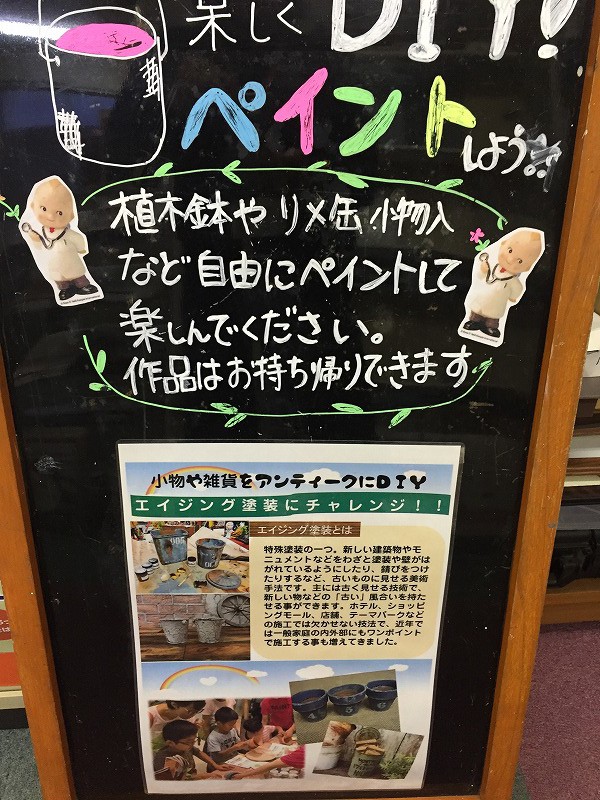 楽しくDIY!
ペイント
しよう!!
植木鉢や リメ缶 小物入
など自由にペイントして
楽しんでください。
作品はお持ち帰りできます
小物や雑貨をアンティークにDIY
エイジング塗装にチャレンジ!!
エイジング塗装とは
特殊塗装の一つ。新しい建築物やモ
ニュメントなどをわざと塗装や壁がは
がれているようにしたり、錆びをつけ
たりするなど、古いものに見せる美術
手法です。主には古く見せる技術で、
新しい物などの「古い」風合いを持た
せる事ができます。ホテル、ショッピ
ングモール、店舗、テーマパークなど
の施工では欠かせない技法で、近年で
は一般家庭の内外部にもワンポイント
で施工する事も増えてきました。